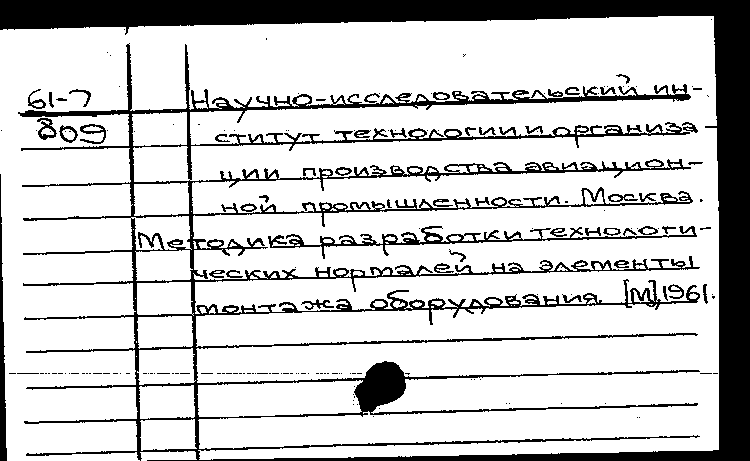 61-7 Научно-исследовательский ин-
809 ститут технологии и организа-
ции производства авиацион-
ной промышленности. Москва.
Методика разработки технологи-
ческих нормалей на элементы
монтажа оборудования. [М],1961.